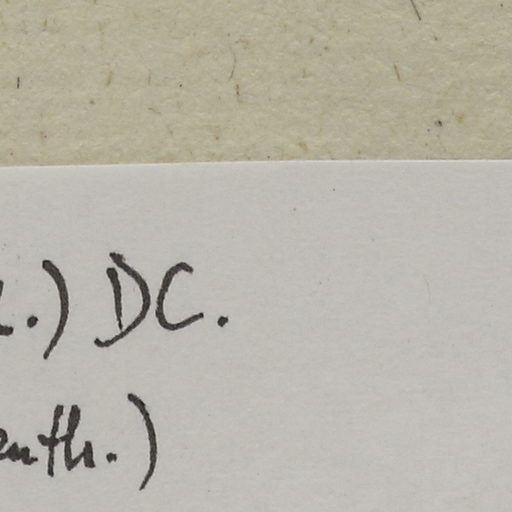 .) DC.
enth.)